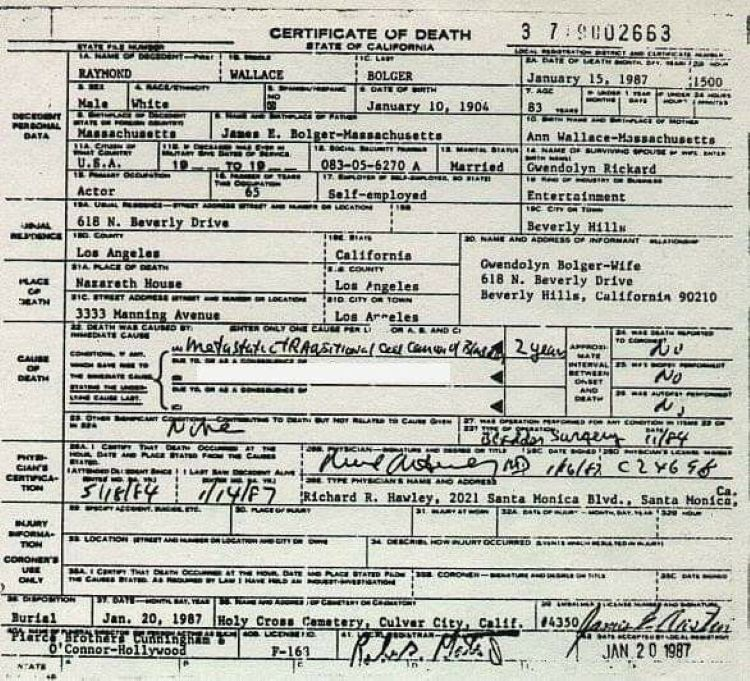 CERTIFICATE OF DEATH
STATE OF CALIFORNIA
3 7 9002663
STATE FILE NUMBER
LOCAL REGISTRATION DISTRICT AND CERTIFICATE NUMBER
1A. NAME OF DECEDENT—FIRST 1B. MIDDLE 1C. LAST 2A. DATE OF DEATH (MONTH, DAY, YEAR) 2B. HOUR
RAYMOND WALLACE BOLGER January 15, 1987 1500
3. SEX 4. RACE/ETHNICITY 5. SPANISH/HISPANIC NO 6. DATE OF BIRTH 7. AGE IF UNDER 1 YEAR MONTHS DAYS IF UNDER 24 HOURS HOURS MINUTES
Male White January 10, 1904 83 YEARS
DECEDENT PERSONAL DATA
8. BIRTHPLACE OF DECEDENT (STATE OR FOREIGN COUNTRY) 9. NAME AND BIRTHPLACE OF FATHER 10. BIRTH NAME AND BIRTHPLACE OF MOTHER
Massachusetts James E. Bolger-Massachusetts Ann Wallace-Massachusetts
11A. CITIZEN OF WHAT COUNTRY 11B. IF DECEASED WAS EVER IN MILITARY GIVE DATES OF SERVICE 12. SOCIAL SECURITY NUMBER 13. MARITAL STATUS 14. NAME OF SURVIVING SPOUSE (IF WIFE, ENTER BIRTH NAME)
U.S.A. 19 TO 19 083-05-6270 A Married Gwendolyn Rickard
15. PRIMARY OCCUPATION 16. NUMBER OF YEARS THIS OCCUPATION 17. EMPLOYER (IF SELF-EMPLOYED, SO STATE) 18. KIND OF INDUSTRY OR BUSINESS
Actor 65 Self-employed Entertainment
USUAL RESIDENCE
19A. USUAL RESIDENCE—STREET ADDRESS (STREET AND NUMBER OR LOCATION) 19B. 19C. CITY OR TOWN
618 N. Beverly Drive Beverly Hills
19D. COUNTY 19E. STATE 20. NAME AND ADDRESS OF INFORMANT—RELATIONSHIP
Los Angeles California
Gwendolyn Bolger-Wife
618 N. Beverly Drive
Beverly Hills, California 90210
PLACE OF DEATH
21A. PLACE OF DEATH 21B. COUNTY
Nazareth House Los Angeles
21C. STREET ADDRESS (STREET AND NUMBER OR LOCATION) 21D. CITY OR TOWN
3333 Manning Avenue Los Angeles
CAUSE OF DEATH
22. DEATH WAS CAUSED BY: (ENTER ONLY ONE CAUSE PER LINE FOR A, B, AND C)
IMMEDIATE CAUSE
(A) Metastatic Transitional Cell Cancer of 2 years
CONDITIONS, IF ANY, WHICH GAVE RISE TO THE IMMEDIATE CAUSE, STATING THE UNDERLYING CAUSE LAST.
DUE TO, OR AS A CONSEQUENCE OF
(B)
DUE TO, OR AS A CONSEQUENCE OF
(C)
APPROXIMATE INTERVAL BETWEEN ONSET AND DEATH
24. WAS DEATH REPORTED TO CORONER?
No
25. WAS BIOPSY PERFORMED?
No
26. WAS AUTOPSY PERFORMED?
No
23. OTHER SIGNIFICANT CONDITIONS—CONTRIBUTING TO DEATH BUT NOT RELATED TO CAUSE GIVEN IN 22A
None
27. WAS OPERATION PERFORMED FOR ANY CONDITION IN ITEMS 22 OR 23? TYPE OF OPERATION DATE
Bladder Surgery 11/84
PHYSICIAN'S CERTIFICATION
28A. I CERTIFY THAT DEATH OCCURRED AT THE HOUR, DATE AND PLACE STATED FROM THE CAUSES STATED.
28B. PHYSICIAN—SIGNATURE AND DEGREE OR TITLE 28C. DATE SIGNED 28D. PHYSICIAN'S LICENSE NUMBER
MD 1/16/87 C24698
I ATTENDED DECEDENT SINCE I LAST SAW DECEDENT ALIVE
5/18/84 1/14/87
28E. TYPE PHYSICIAN'S NAME AND ADDRESS
Richard R. Hawley, 2021 Santa Monica Blvd., Santa Monica, Ca.
INJURY INFORMATION
29. SPECIFY ACCIDENT, SUICIDE, ETC. 30. PLACE OF INJURY 31. INJURY AT WORK 32A. DATE OF INJURY—MONTH, DAY, YEAR 32B. HOUR
33. LOCATION (STREET AND NUMBER OR LOCATION AND CITY OR TOWN) 34. DESCRIBE HOW INJURY OCCURRED (EVENTS WHICH RESULTED IN INJURY)
CORONER'S USE ONLY
35A. I CERTIFY THAT DEATH OCCURRED AT THE HOUR, DATE AND PLACE STATED FROM THE CAUSES STATED, AS REQUIRED BY LAW I HAVE HELD AN INQUEST-INVESTIGATION
35B. CORONER—SIGNATURE AND DEGREE OR TITLE 35C. DATE SIGNED
36. DISPOSITION 37. DATE—MONTH, DAY, YEAR 38. NAME AND ADDRESS OF CEMETERY OR CREMATORY 39. EMBALMER'S LICENSE NUMBER AND SIGNATURE
Burial Jan. 20, 1987 Holy Cross Cemetery, Culver City, Calif. #4350
Pierce Brothers Cunningham & O'Connor-Hollywood
40B. LICENSE NO.
F-163
41. REGISTRAR
42. DATE ACCEPTED BY LOCAL REGISTRAR
JAN 20 1987
STATE A. B. C. D. E. F.